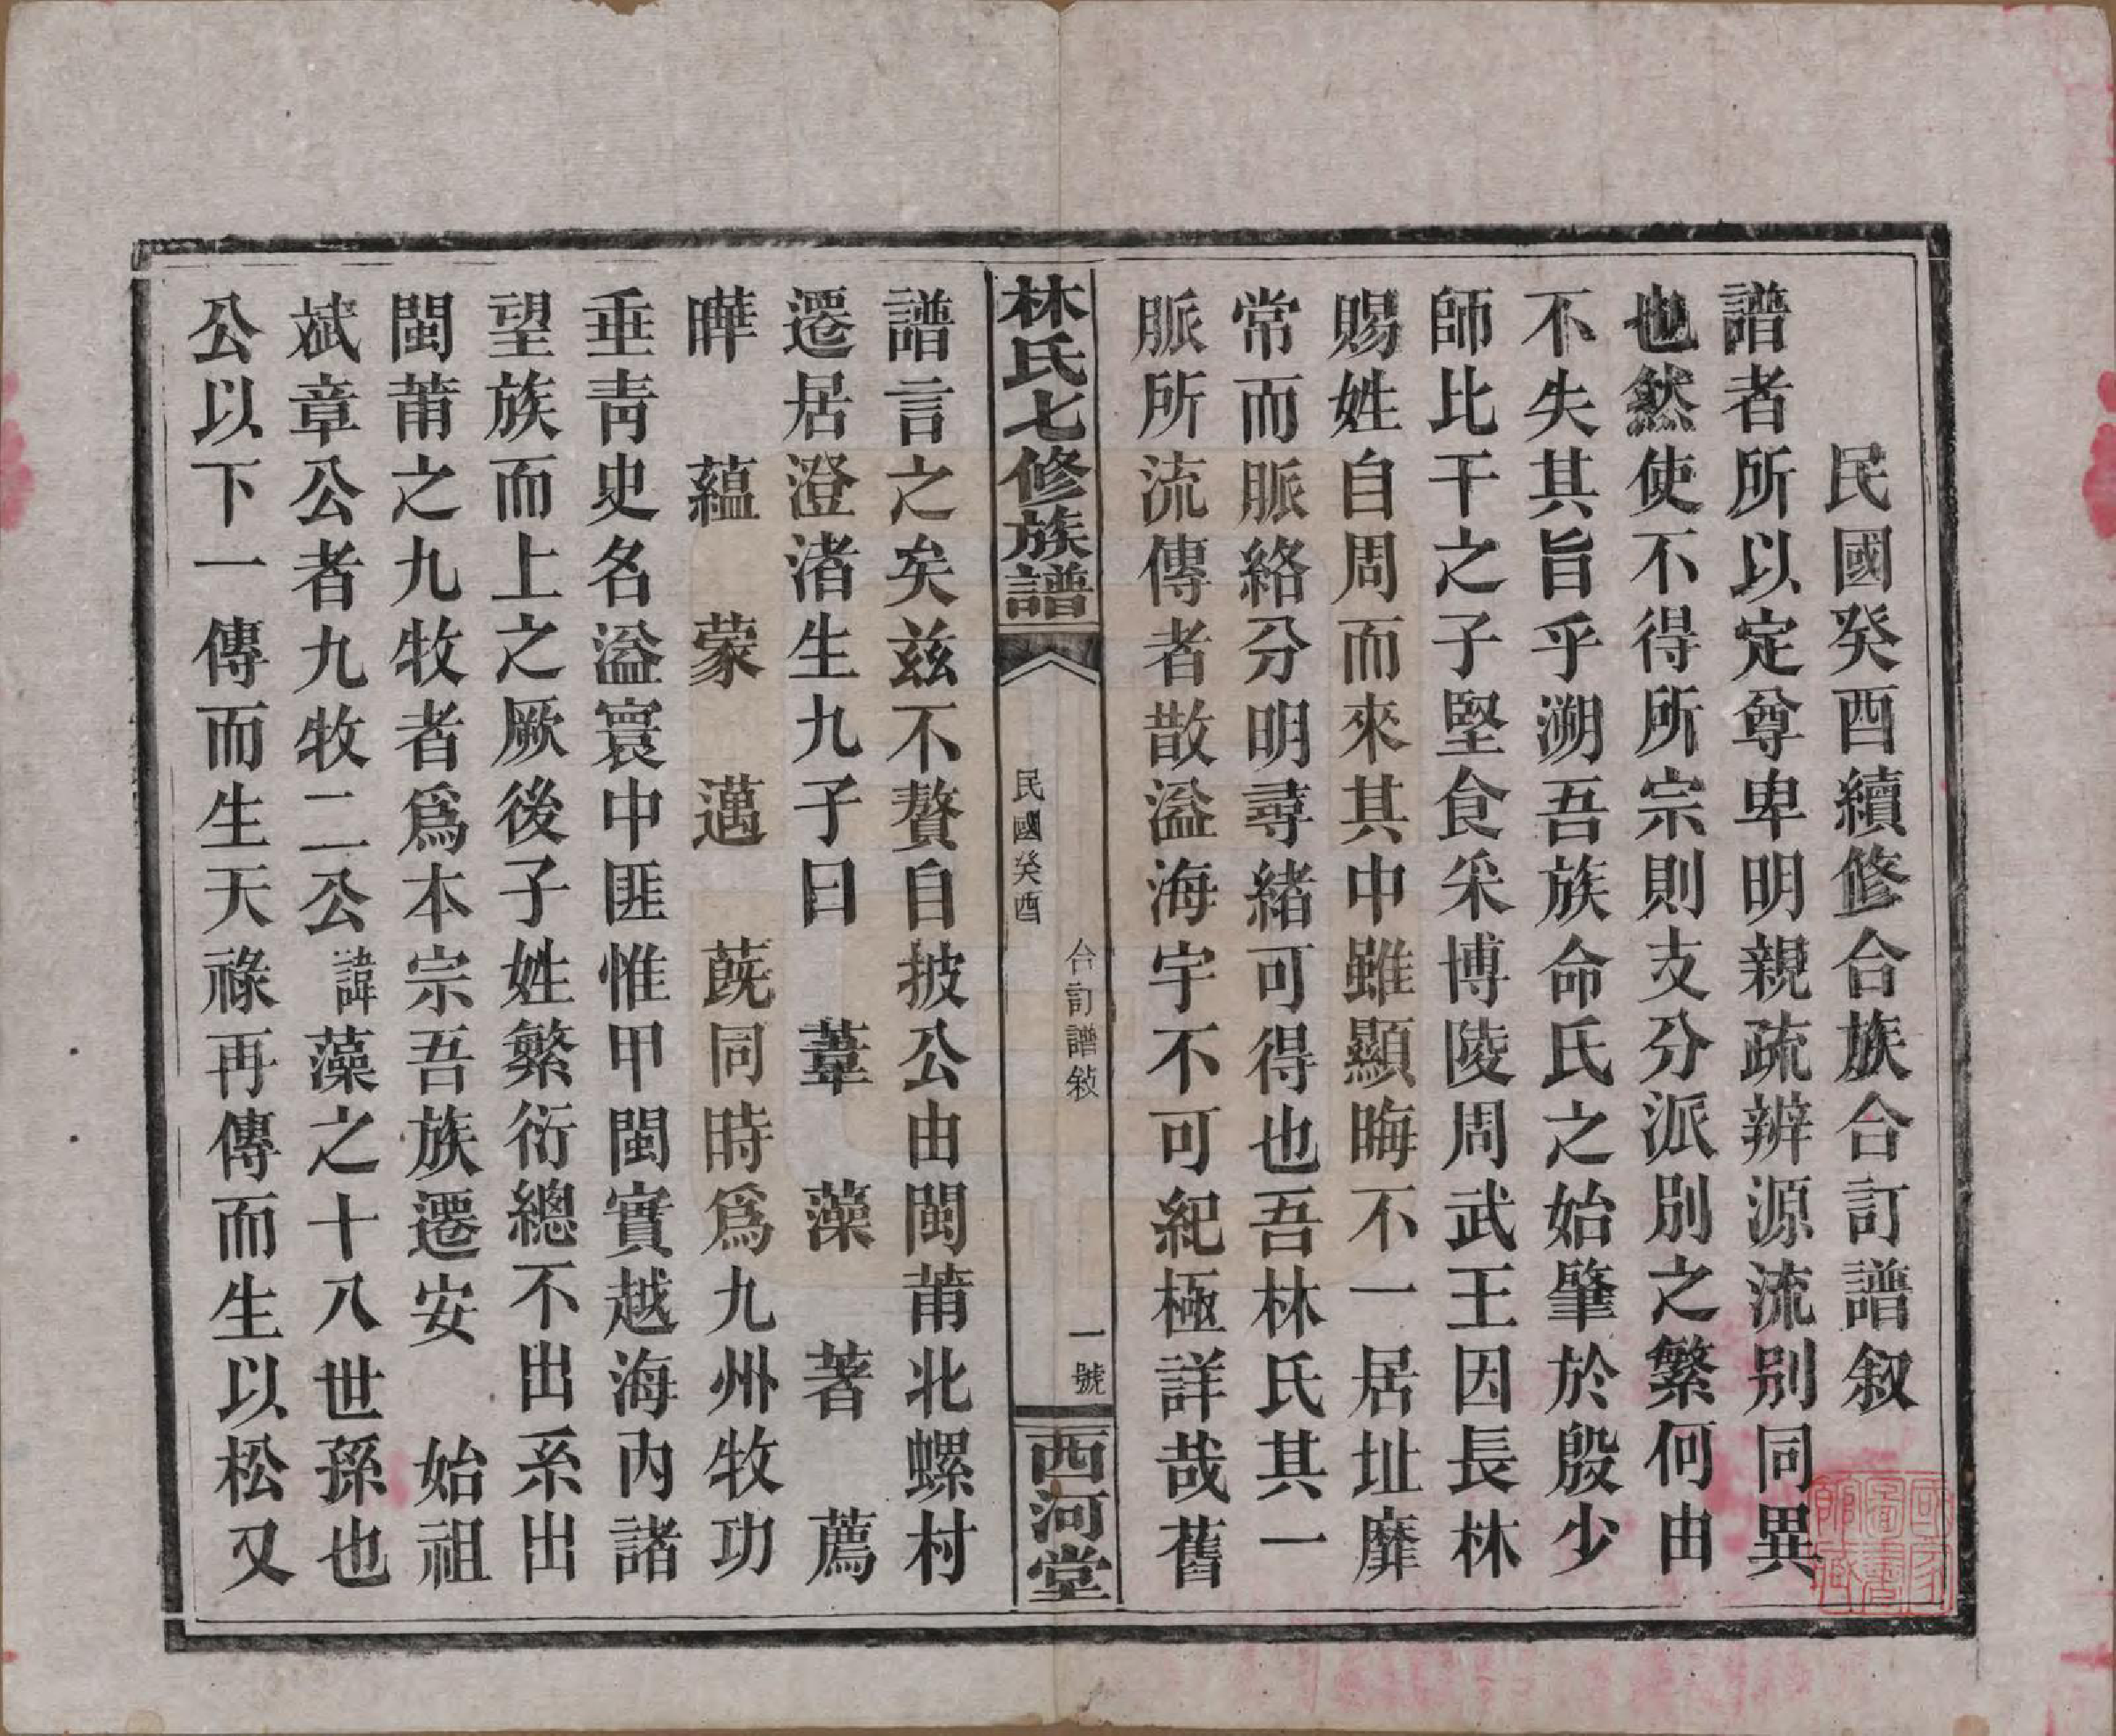 民國癸酉續修合族合訂譜叙
譜者所以定尊卑明親疏辨源流別同異
也然使不得所宗則支分派別之繁何由
不失其旨乎溯吾族命氏之始肇於殷少
師比干之子堅食采博陵周武王因長林
賜姓自周而來其中雖顯晦不一居址靡
常而脈絡分明尋緒可得也吾林氏其一
脈所流傳者散溢海宇不可紀極詳哉舊
林氏七修族譜
民國癸酉
合訂譜敍
一號
西河堂
譜言之矣茲不贅自披公由閩莆北螺村
遷居澄渚生九子曰 葦 藻 著 薦
曄 蘊 蒙 邁 蔇同時爲九州牧功
垂靑史名溢寰中匪惟甲閩實越海內諸
望族而上之厥後子姓繁衍總不出系出
閩莆之九牧者爲本宗吾族遷安 始祖
斌章公者九牧二公諱藻之十八世孫也
公以下一傳而生天祿再傳而生以松又
國家圖書館藏